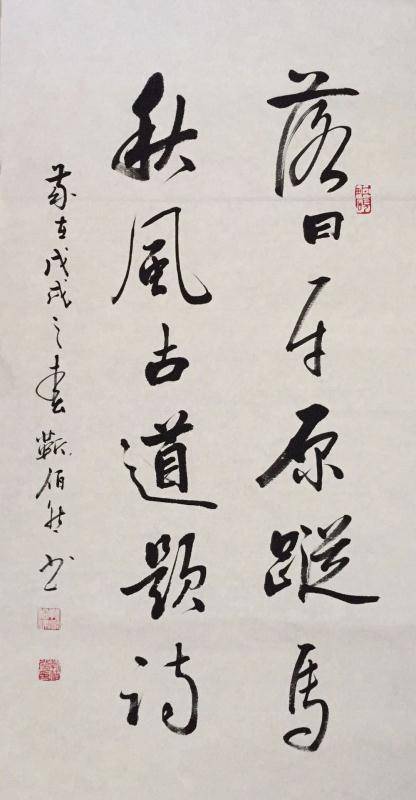 落日平原蹤馬
秋風古道題詩
歲在戊戌之春 靳佰 书